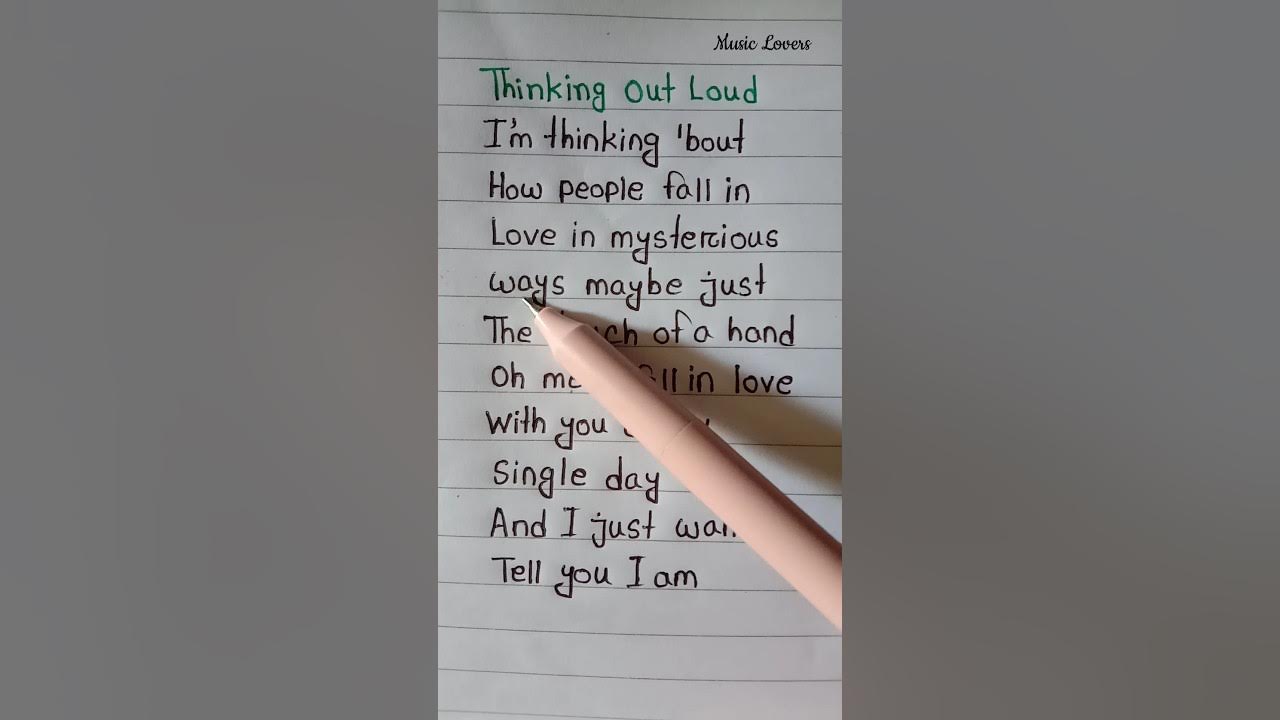 Music Lovers
Thinking Out Loud
I'm thinking 'bout
How people fall in
Love in mysterious
ways maybe just
The of a hand
Oh in love
With you
Single day
And I just
Tell you I am